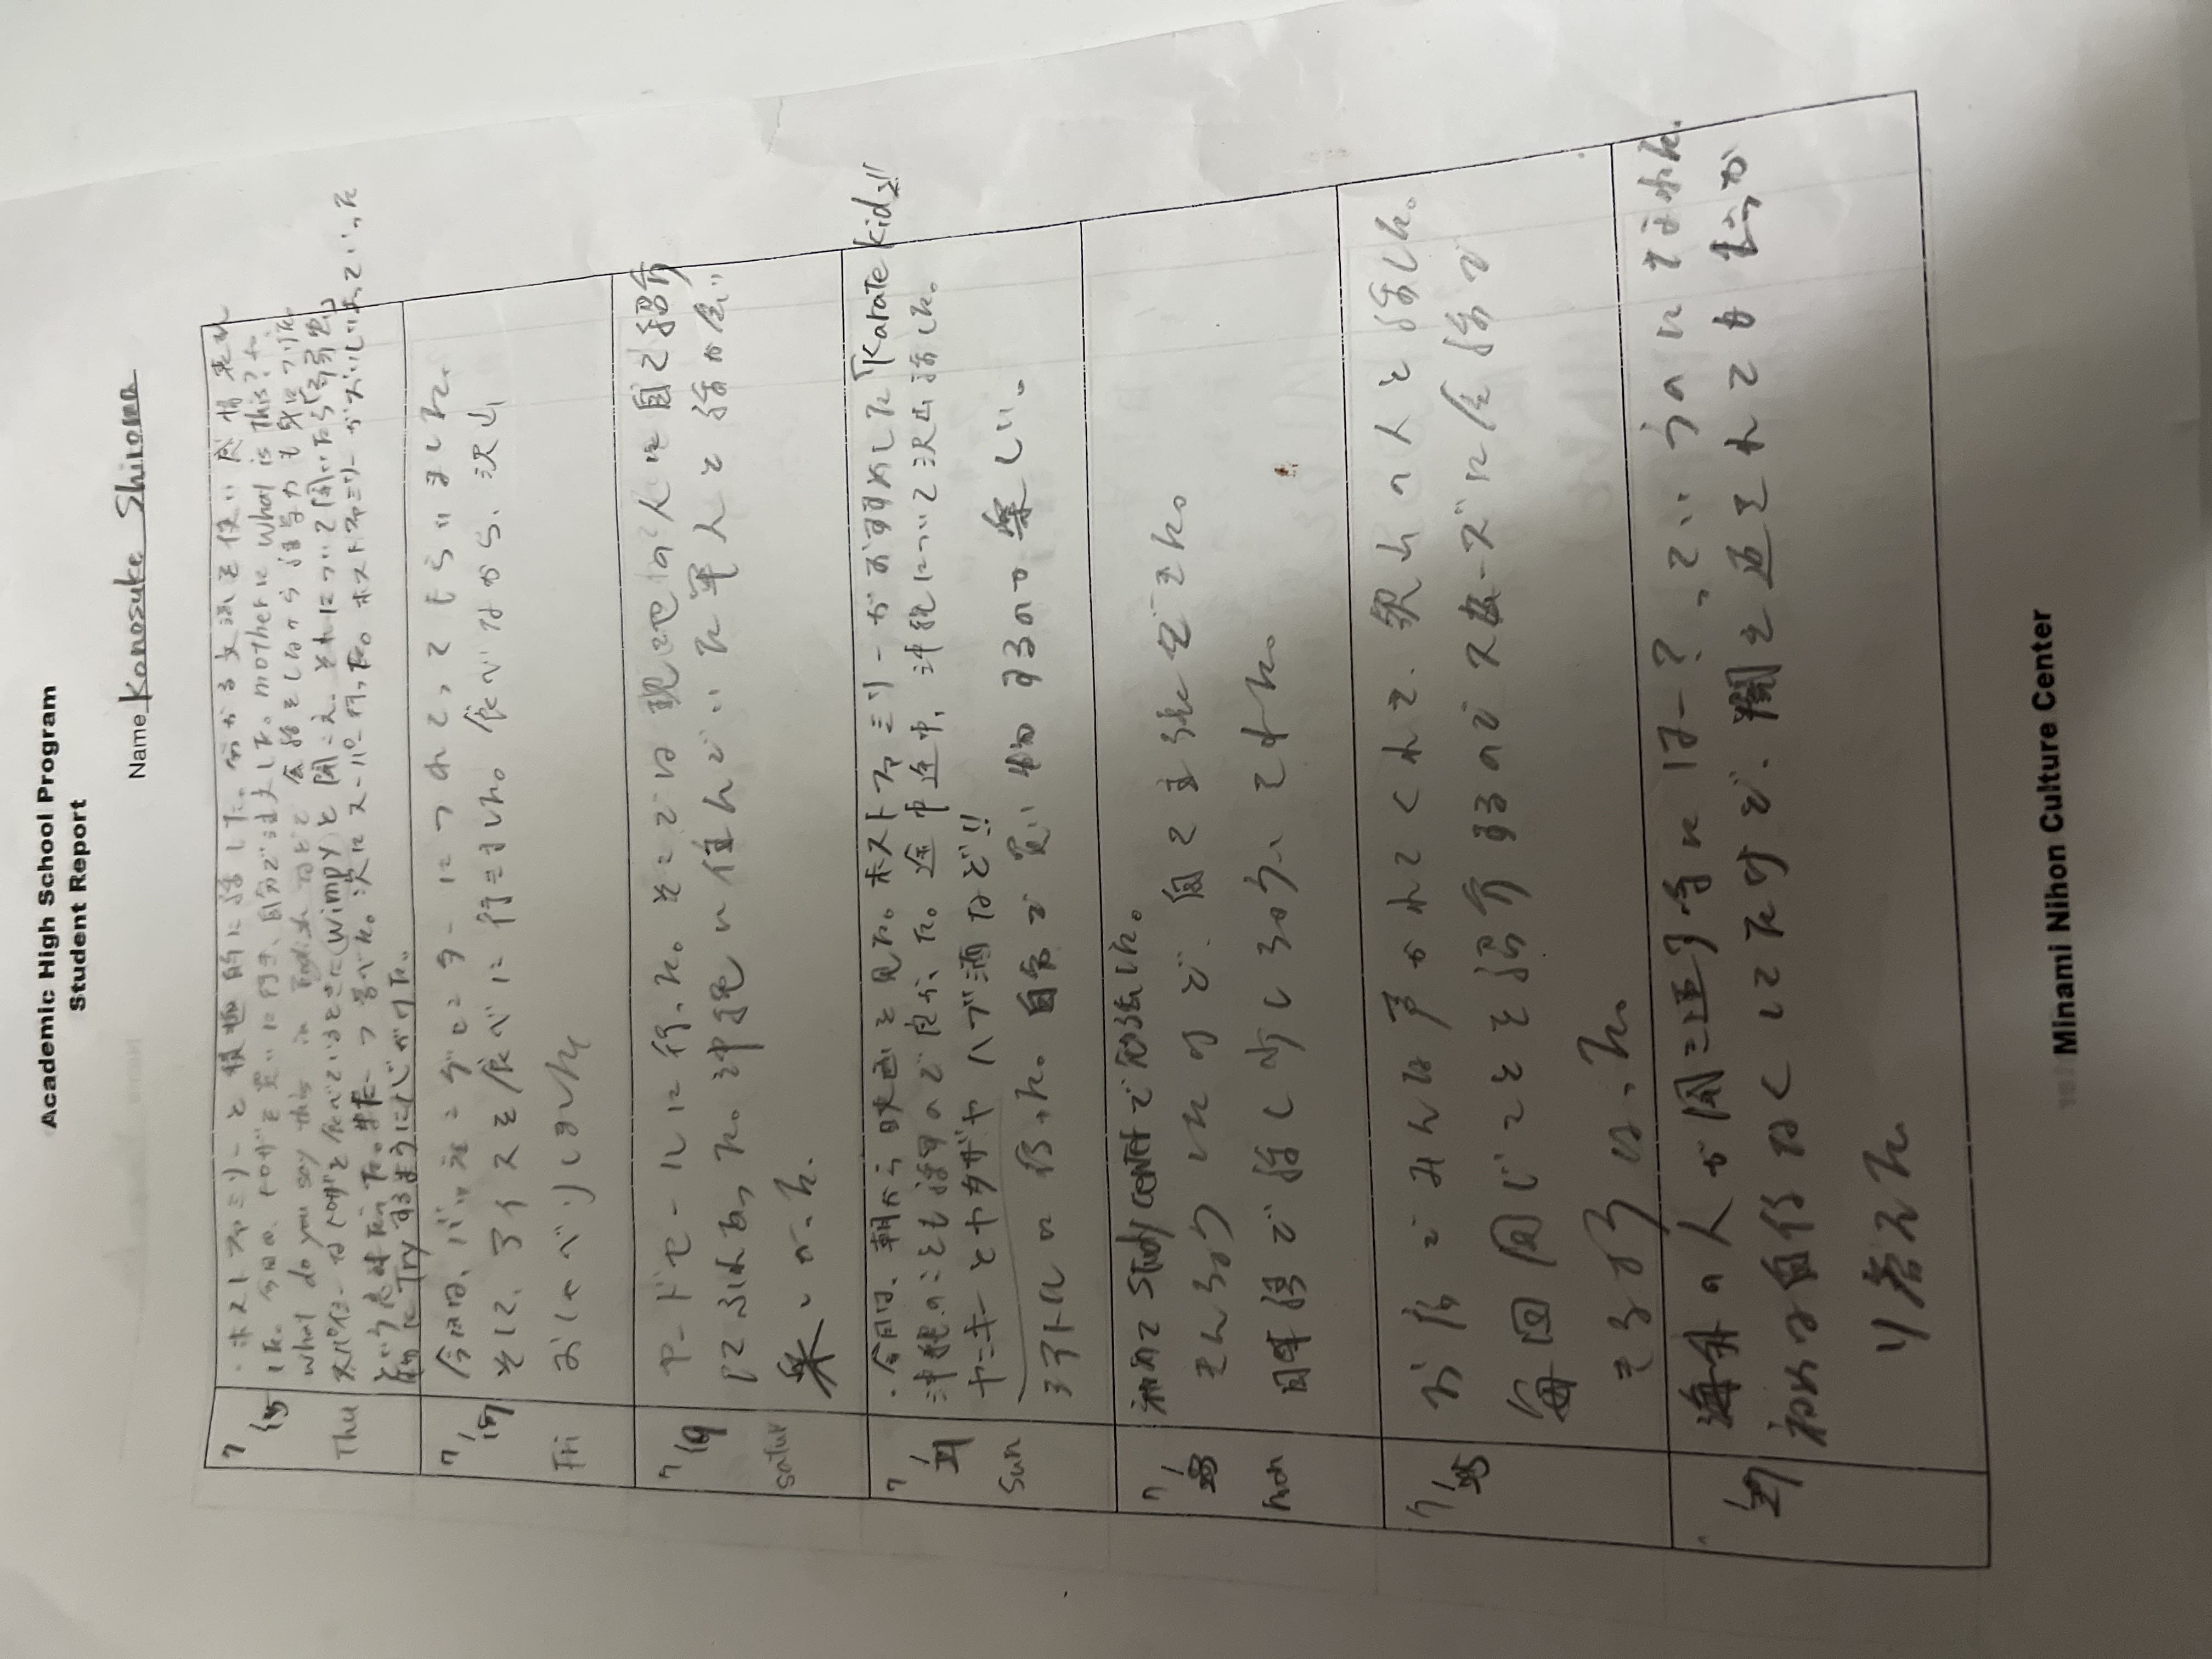 Academic High School Program
Student Report
Name Konosuke Shiroma
7/15
Thu
・ホストファミリーと積極的に話した。分かる文法を使い感情表れ
した。今日は、ピザを買いに行き、自分で注文した。motherに what is this? や
what do you say this in English などで会話をしながら語学力も身につけた。
スパイシーなピザを食べているときに(wimpy)と聞こえ、それについて聞いたら「弱虫」
という意味だった。また一つ学べた。次にスーパー行った。ホストファミリーがおいしいよっていった
物に Try するように心がけた。
7/17
Fri
今日は、バッティングセンターにつれてってもらいました。
そして、アイスを食べに行きました。食べながら、沢山
おしゃべりしました
7/19
satur
ヤードセールに行った。そこでは現地の人に自己紹介
してふれあった。沖縄に住んでいた軍人と話が会い
楽しかった。
7/21
Sun
・今日は、朝から映画を見た。ホストファミリーがおすすめした「Karate Kid」!!
沖縄のことも話すので良かった。途中途中、沖縄について沢山話した。
ヤンキーとヤクザや ハブ酒など!!
シアトルに行った。自分で買い物するのが楽しい。
7/23
Mon
初めて study center で勉強した。
きんちょうしたけど、自己主張できた。
日本語で話し少しちゅういされた。
7/25
お店でみんな声かれてくれて、沢山の人と話した。
毎回同じことを紹介するのでスムーズに会話で
きるようなった。
/27
海外の人が聞き返す時に はー?っていうのになれた。
初めは自信なくしてたけど、聞き返されてもしっか
り答えた
Minami Nihon Culture Center